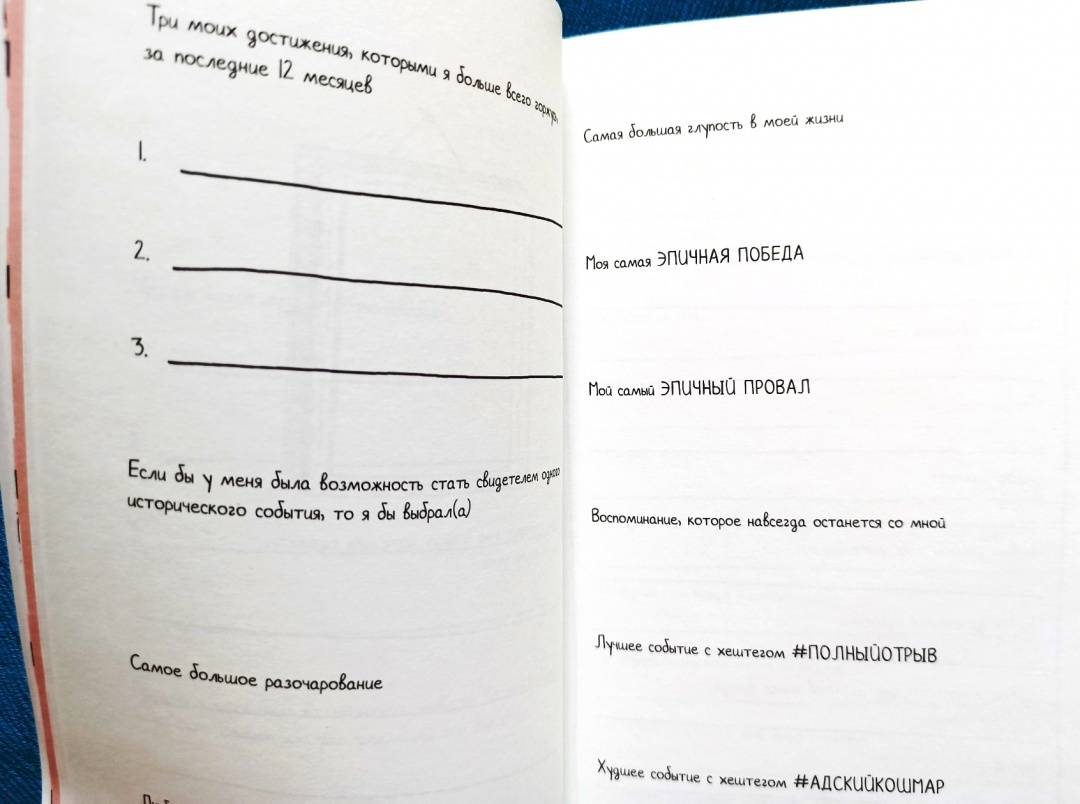 Три моих достижения, которыми я больше всего горжусь,
за последние 12 месяцев
1.
2.
3.
Если бы у меня была возможность стать свидетелем одного
исторического события, то я бы выбрал(а)
Самое большое разочарование
Самая большая глупость в моей жизни
Моя самая ЭПИЧНАЯ ПОБЕДА
Мой самый ЭПИЧНЫЙ ПРОВАЛ
Воспоминание, которое навсегда останется со мной
Лучшее событие с хештегом #ПОЛНЫЙОТРЫВ
Худшее событие с хештегом #АДСКИЙКОШМАР